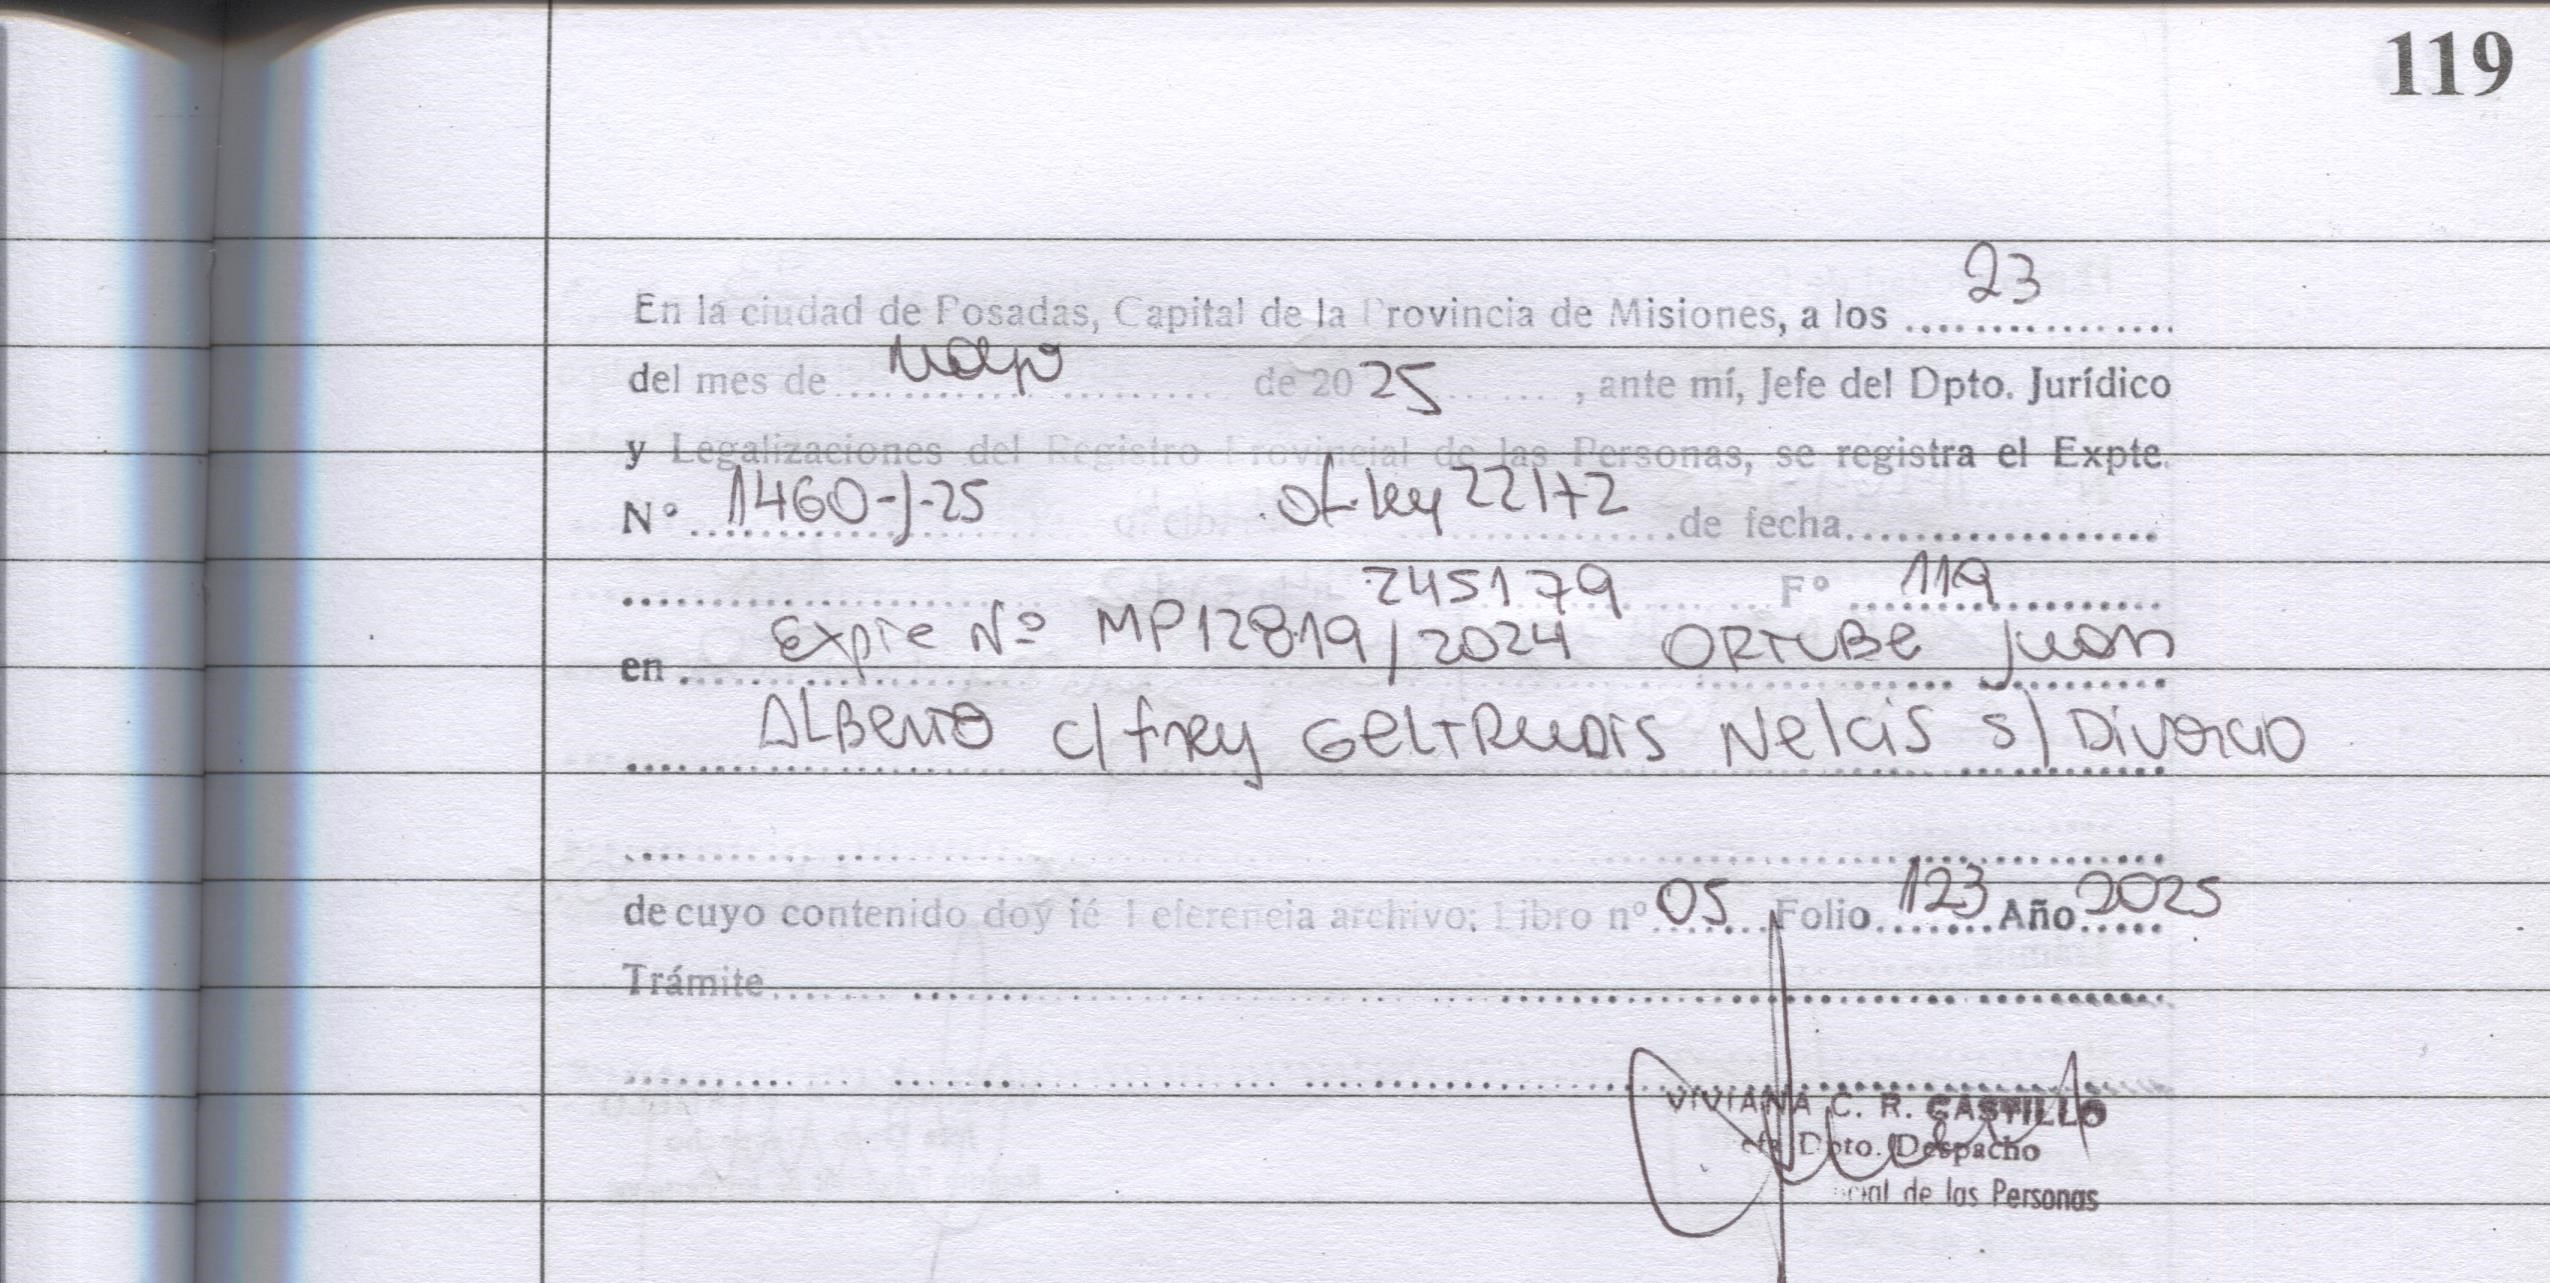 119
En la ciudad de Posadas, Capital de la Provincia de Misiones, a los 23
del mes de mayo de 2025, ante mí, Jefe del Dpto. Jurídico
y Legalizaciones del Registro Provincial de las Personas, se registra el Expte.
Nº 1460-J-25 of. ley 22172 de fecha
245179 Fº 119
en Expte Nº MP12819/2024 ORTUBE Juan
ALBERTO c/ frey GELTRUDIS Nelcis s/ Divorcio
de cuyo contenido doy fé Referencia archivo: Libro nº 05 Folio 123 Año 2025
Trámite
VIVIANA C. R. CASTILLO
Dpto. Despacho
de las Personas